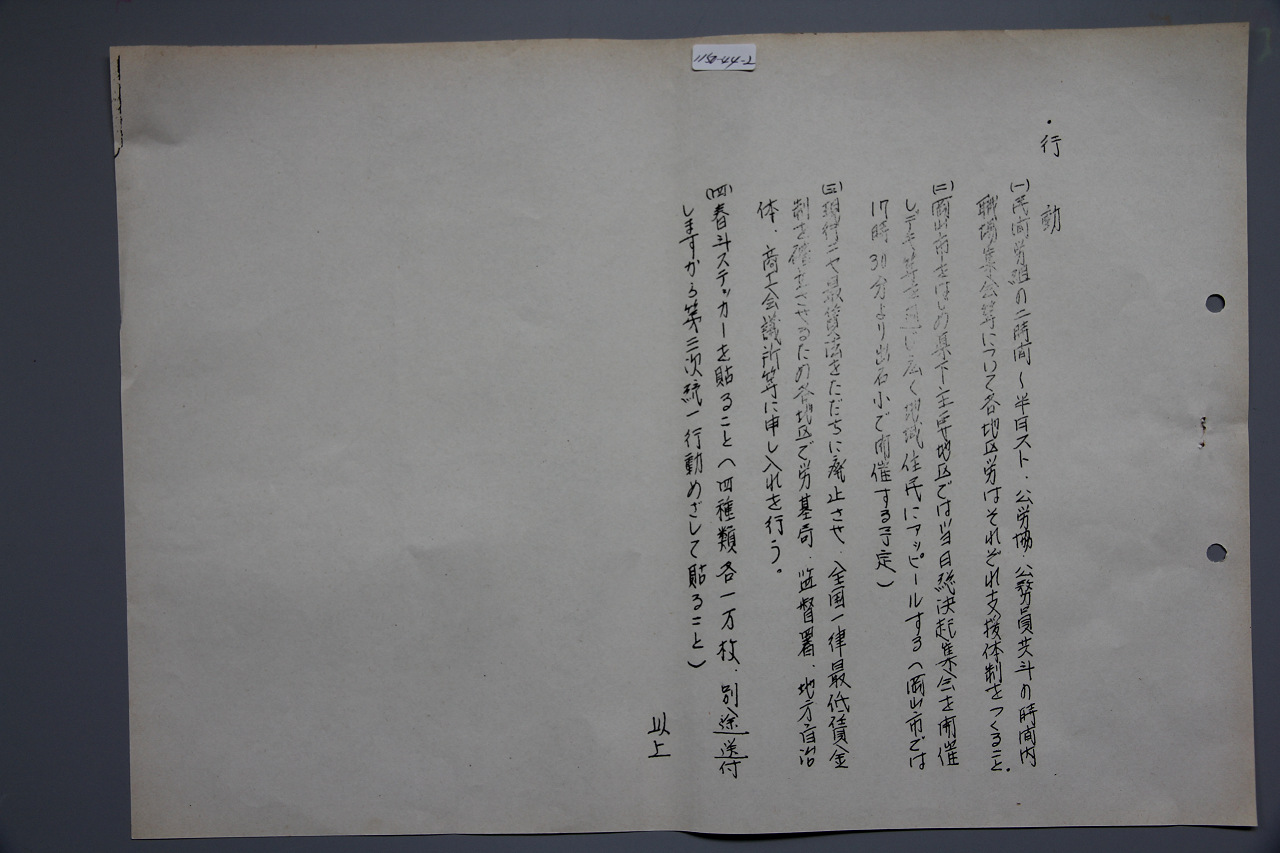 1150-44-2
・行動
(一)民間労組の二時間〜半日スト、公労協、公務員共斗の時間内
職場集会等について各地区労はそれぞれ支援体制をつくること。
(二)岡山市をはじめ県下主要地区では当日総決起集会を開催
しデモ等を通じ広く地域住民にアッピールする(岡山市では
17時30分より出石小で開催する予定)
(三)現行ニセ最賃法をただちに廃止させ、全国一律最低賃金
制を確立させるため各地区で労基局、監督署、地方自治
体、商工会議所等に申し入れを行う。
(四)春斗ステッカーを貼ること(四種類各一万枚、別途送付
しますから第三次統一行動めざして貼ること)
以上